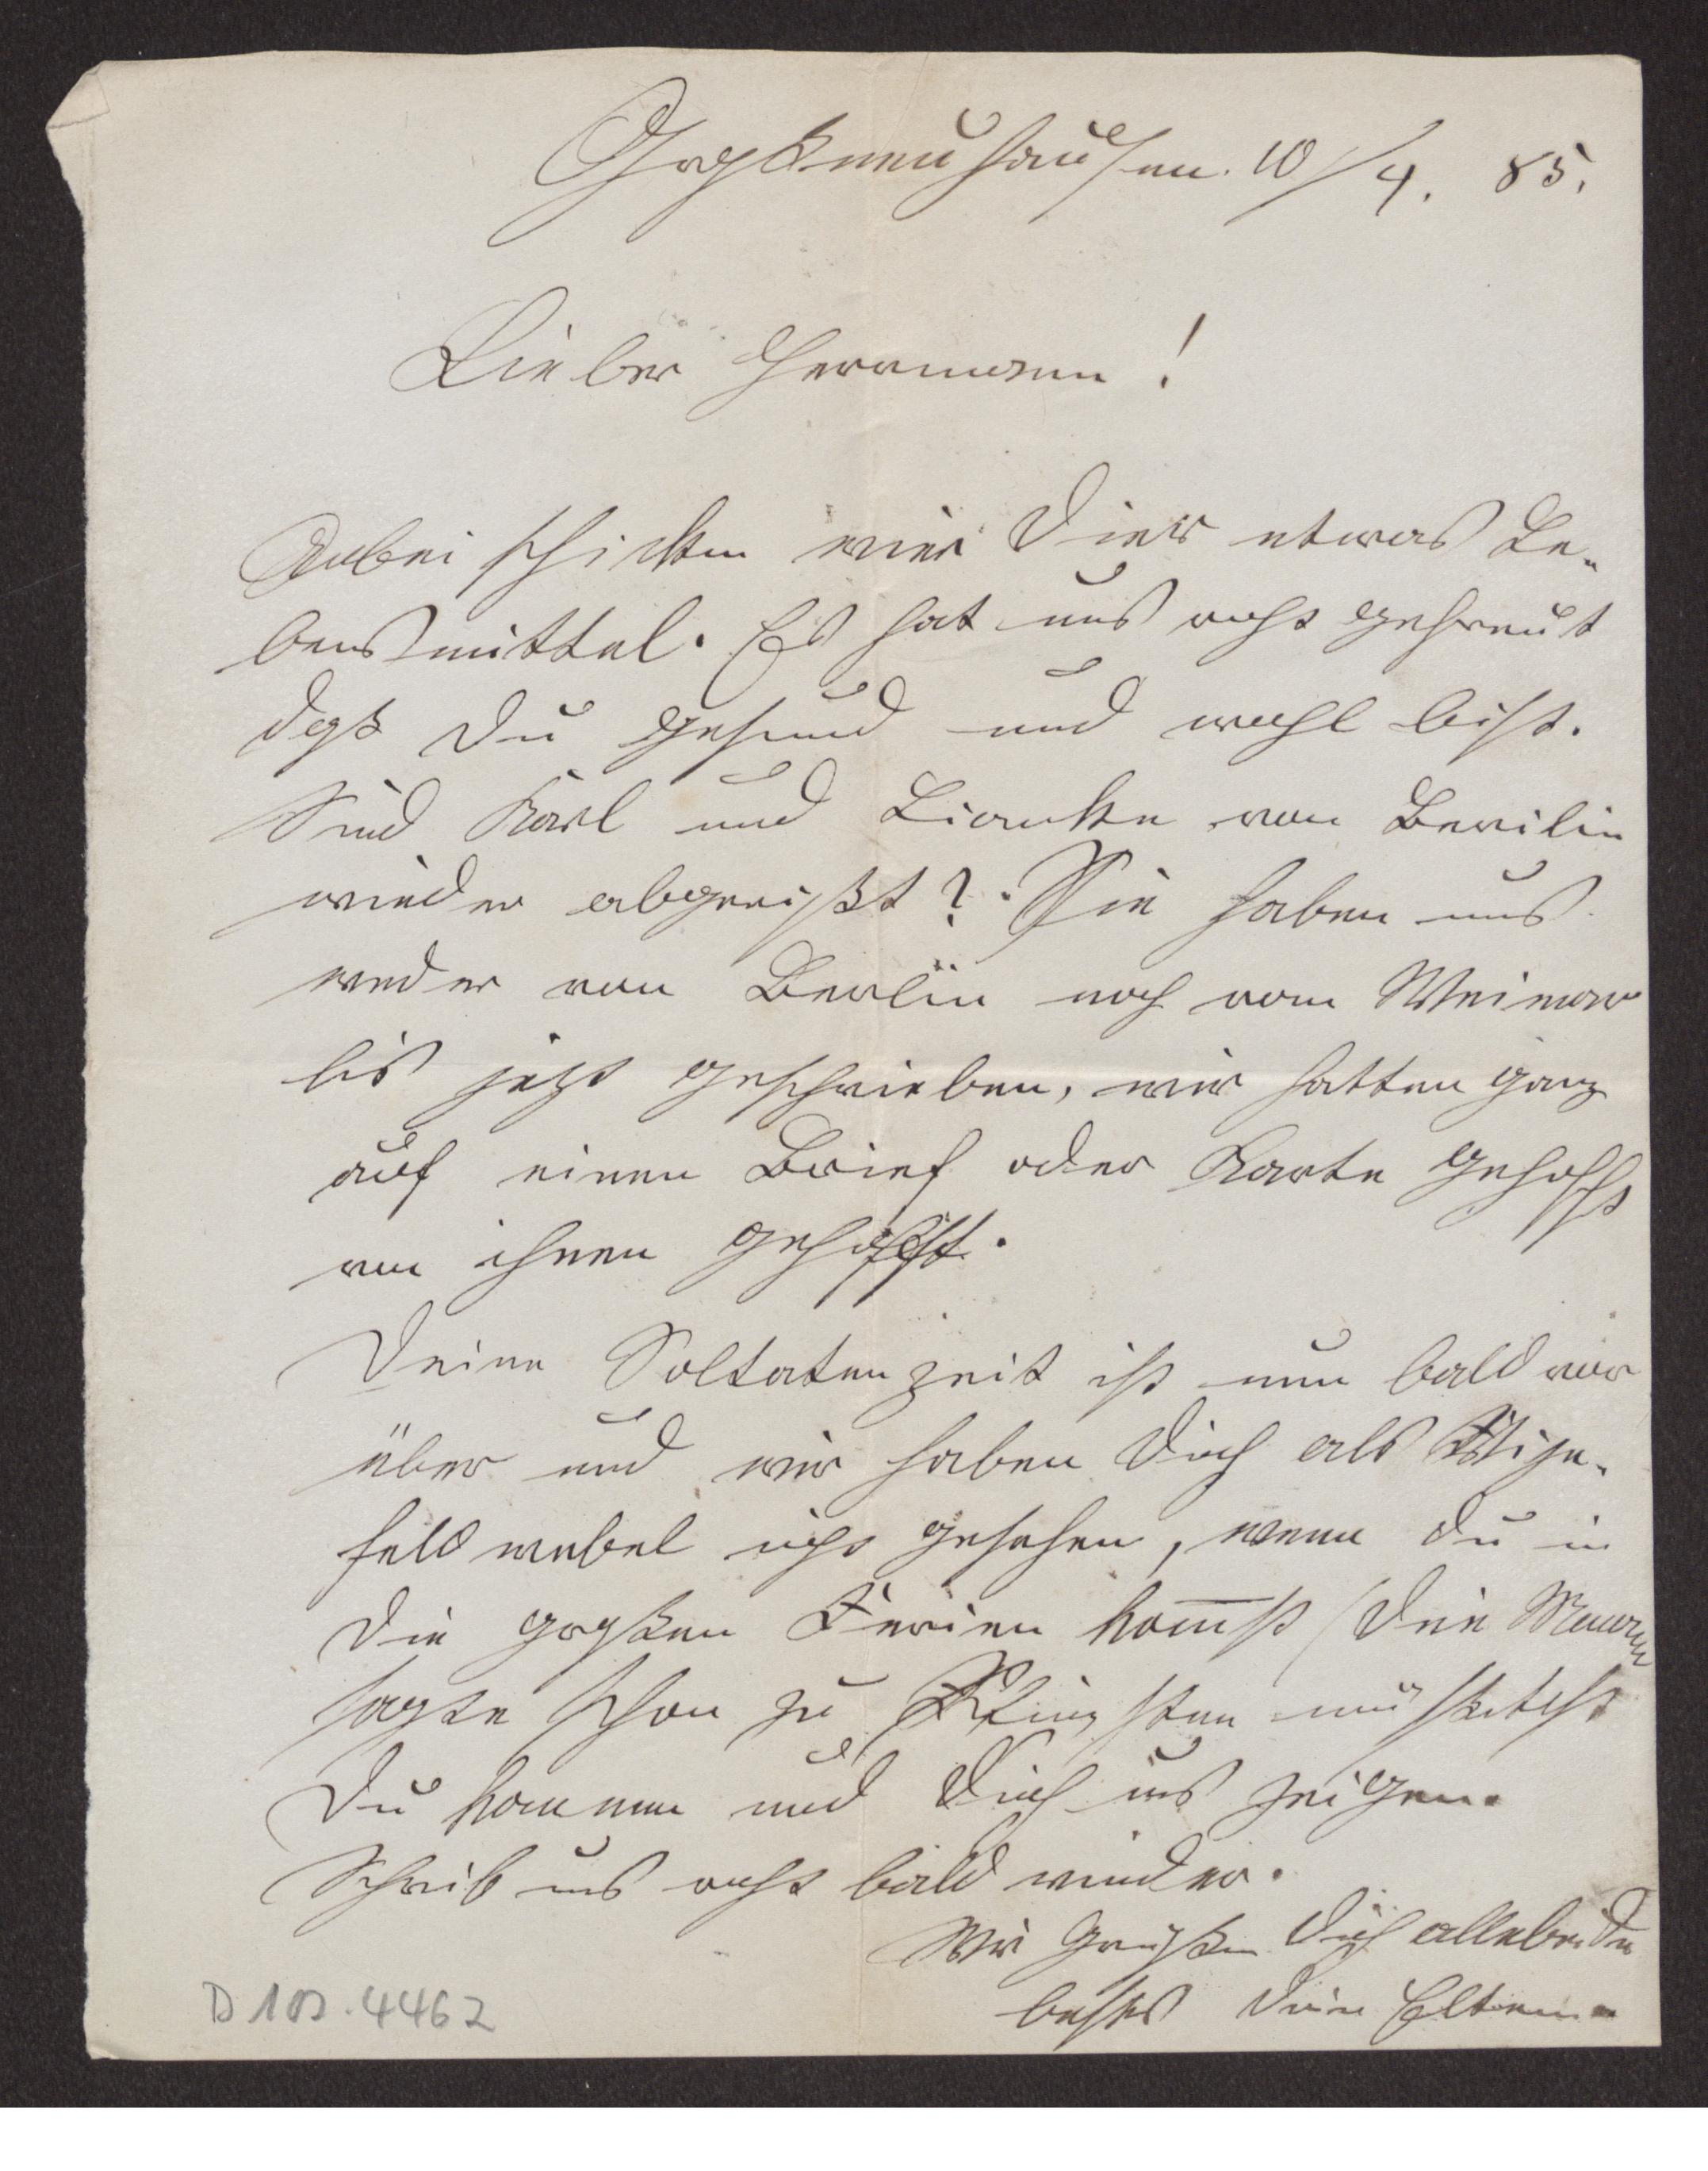 Großneuhausen. 10/4. 85.
Lieber Herrmann!
Anbei schicken wier Dier etwas Le-
bensmittel. Es hat uns recht gefreut
daß Du gesund und wohl bist.
Sind Karl und Lianka von Berilin
wieder abgereißt? Sie haben uns
weder von Berlin noch vom Weimar
bis jetzt geschrieben, wir hatten ganz
auf einen Brief oder Karte gehofft
von ihnen gehofft.
Deine Soltatenzeit ist nun bald vor
über und wir haben Dich als Vize-
feldwebel nicht gesehen, wenn Du in
die großen Ferien kom̅st (Die Mama
sagte schon zu Pfingsten müßtest
Du kommen und Dich uns zeigen.
Schreib uns recht bald wieder.
Wir grüßen Dich allebeide
bestes Deine Eltern.
D 100.4462